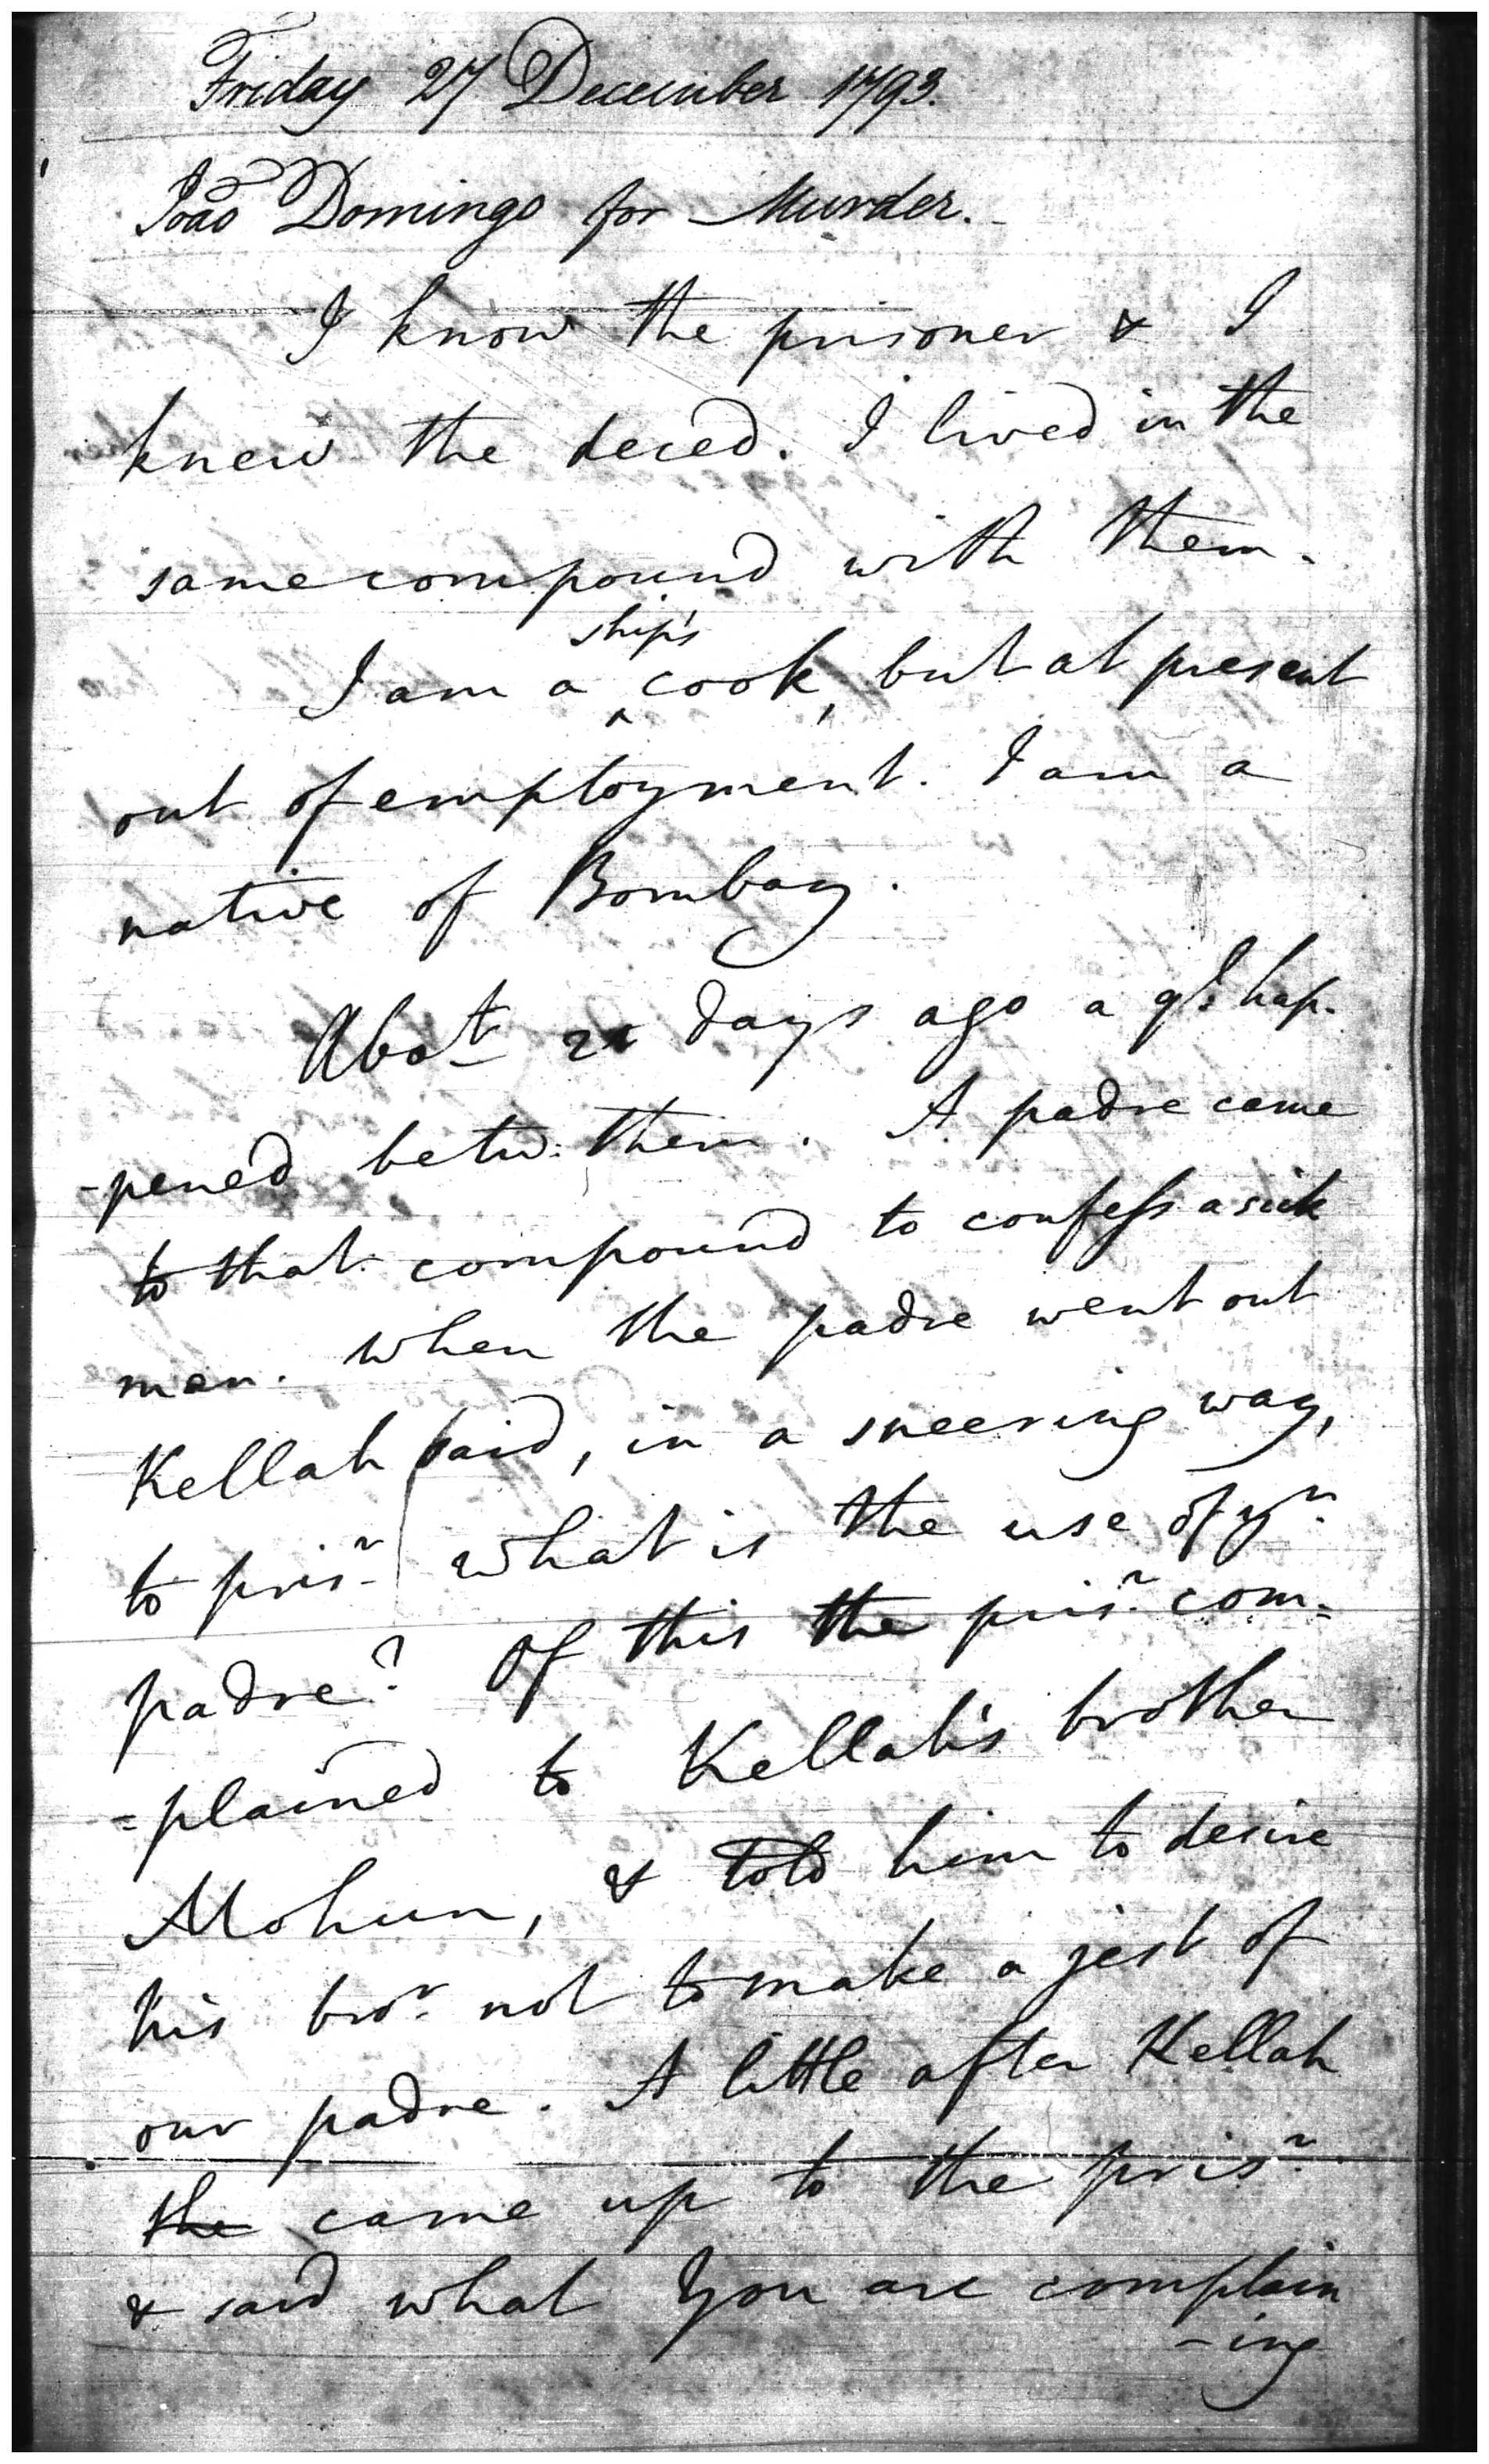 Friday 27 December 1793.
João Domingo for Murder.
I know the prisoner & I
knew the deced. I lived in the
same compound with them.
I am a ship's cook, but at present
out of employment. I am a
native of Bombay.
Abot days ago a ql: hap-
-pened betw: them. A padre came
to that compound to confess a sick
man. When the padre went out
Kellah said, in a sneering way,
to prisr. what is the use of yr.
padre? Of this the prisr. com=
=plained to Kellah's brother
Mohun, & told him to desire
his bror. not to make a jest of
our padre. A little after Kellah
the came up to the prisr.
& said what you are complain
-ing